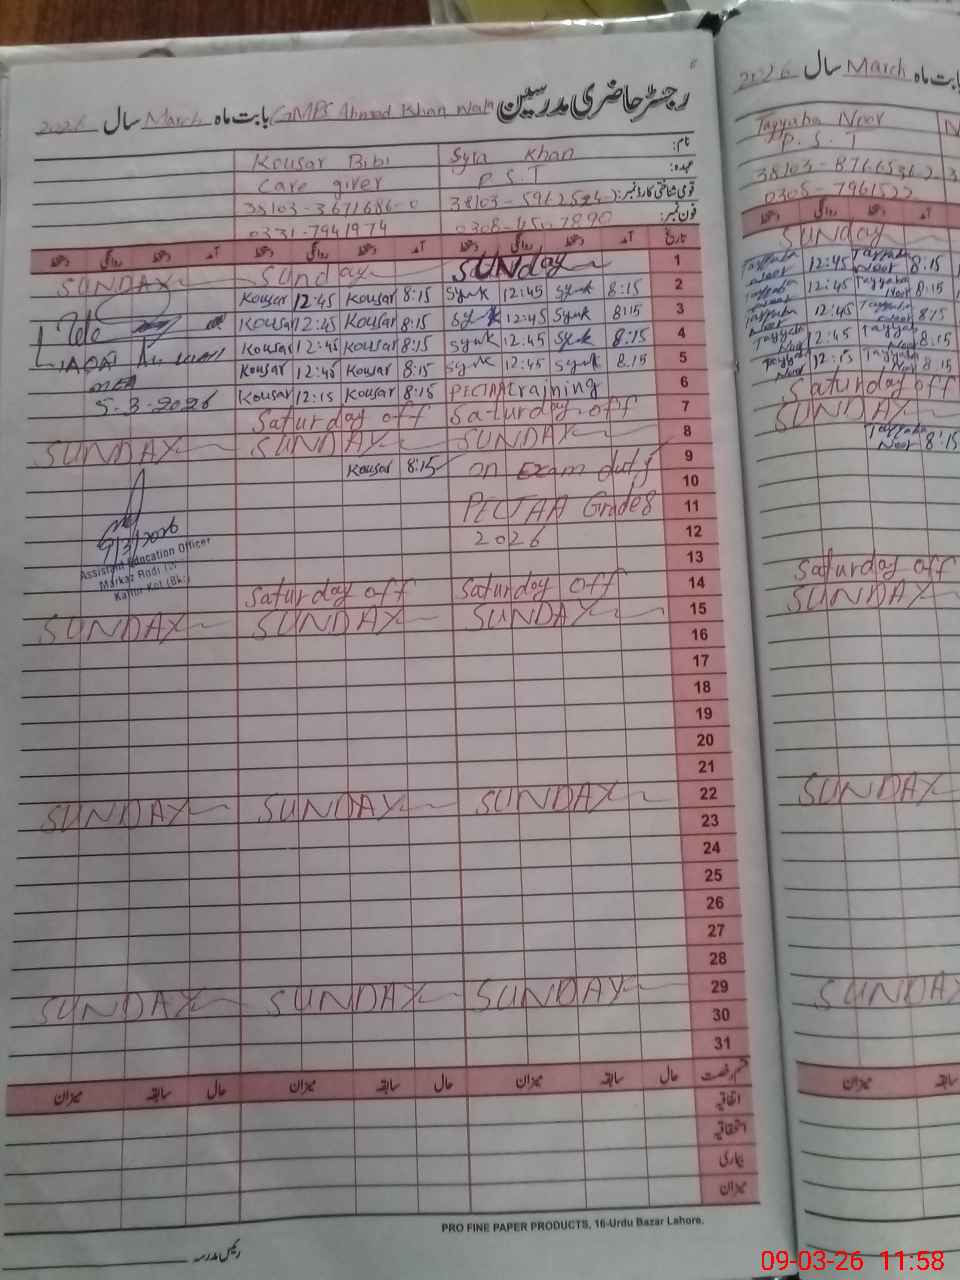 رجسٹر حاضری مدرسین GMPS Ahmad Khan Wala بابت ماہ March سال 2026
نام: Syra Khan Kousar Bibi
عہدہ: P.S.T Care giver
قومی شناختی کارڈ نمبر: 38103-3671686-0
فون نمبر: 0331-7941974
تاریخ آمد دستخط روانگی دستخط آمد دستخط روانگی دستخط آمد دستخط روانگی دستخط
1 SUNday Sunday SUNDAY
2 8:15 Syrk 12:45 Syrk 8:15 Kousar 12:45 Kousar
3 8:15 Syrk 12:45 Syrk 8:15 Kousar 12:45 Kousar
4 8:15 Syrk 12:45 Syrk 8:15 Kousar 12:45 Kousar
5 8:15 Syrk 12:45 Syrk 8:15 Kousar 12:45 Kousar
6 PECTAA training 8:15 Kousar 12:15 Kousar
5-3-2026
7 Saturday off Saturday off
8 SUNDAY SUNDAY SUNDAY
9 on Exam duty 8:15 Kousar
10
11 PECTAA Grade 8
12 2026
9/3/2026
Assistant Education Officer
Markaz Rodi
Kallur Kot (Bkr)
13
14 Saturday off Saturday off
15 SUNDAY SUNDAY SUNDAY
16
17
18
19
20
21
22 SUNDAY SUNDAY SUNDAY
23
24
25
26
27
28
29 SUNDAY SUNDAY SUNDAY
30
31
قسم رخصت حال سابقہ میزان حال سابقہ میزان حال سابقہ میزان
اتفاقیہ
استحقاقیہ
بیماری
میزان
PRO FINE PAPER PRODUCTS, 16-Urdu Bazar Lahore.
رئیس مدرسہ
بابت ماہ March سال 2026
Tayyaba Noor
P.S.T
دستخط روانگی دستخط آمد
Sunday
8:15 Tayyaba Noor 12:45 Tayyaba Noor
8:15 Tayyaba Noor 12:45 Tayyaba Noor
8:15 Tayyaba Noor 12:45 Tayyaba Noor
8:15 Tayyaba Noor 12:45 Tayyaba Noor
8:15 Tayyaba Noor 12:15 Tayyaba Noor
Saturday off
SUNDAY
8:15 Tayyaba Noor
Saturday off
SUNDAY
SUNDAY
SUNDAY
میزان سابقہ
09-03-26 11:58